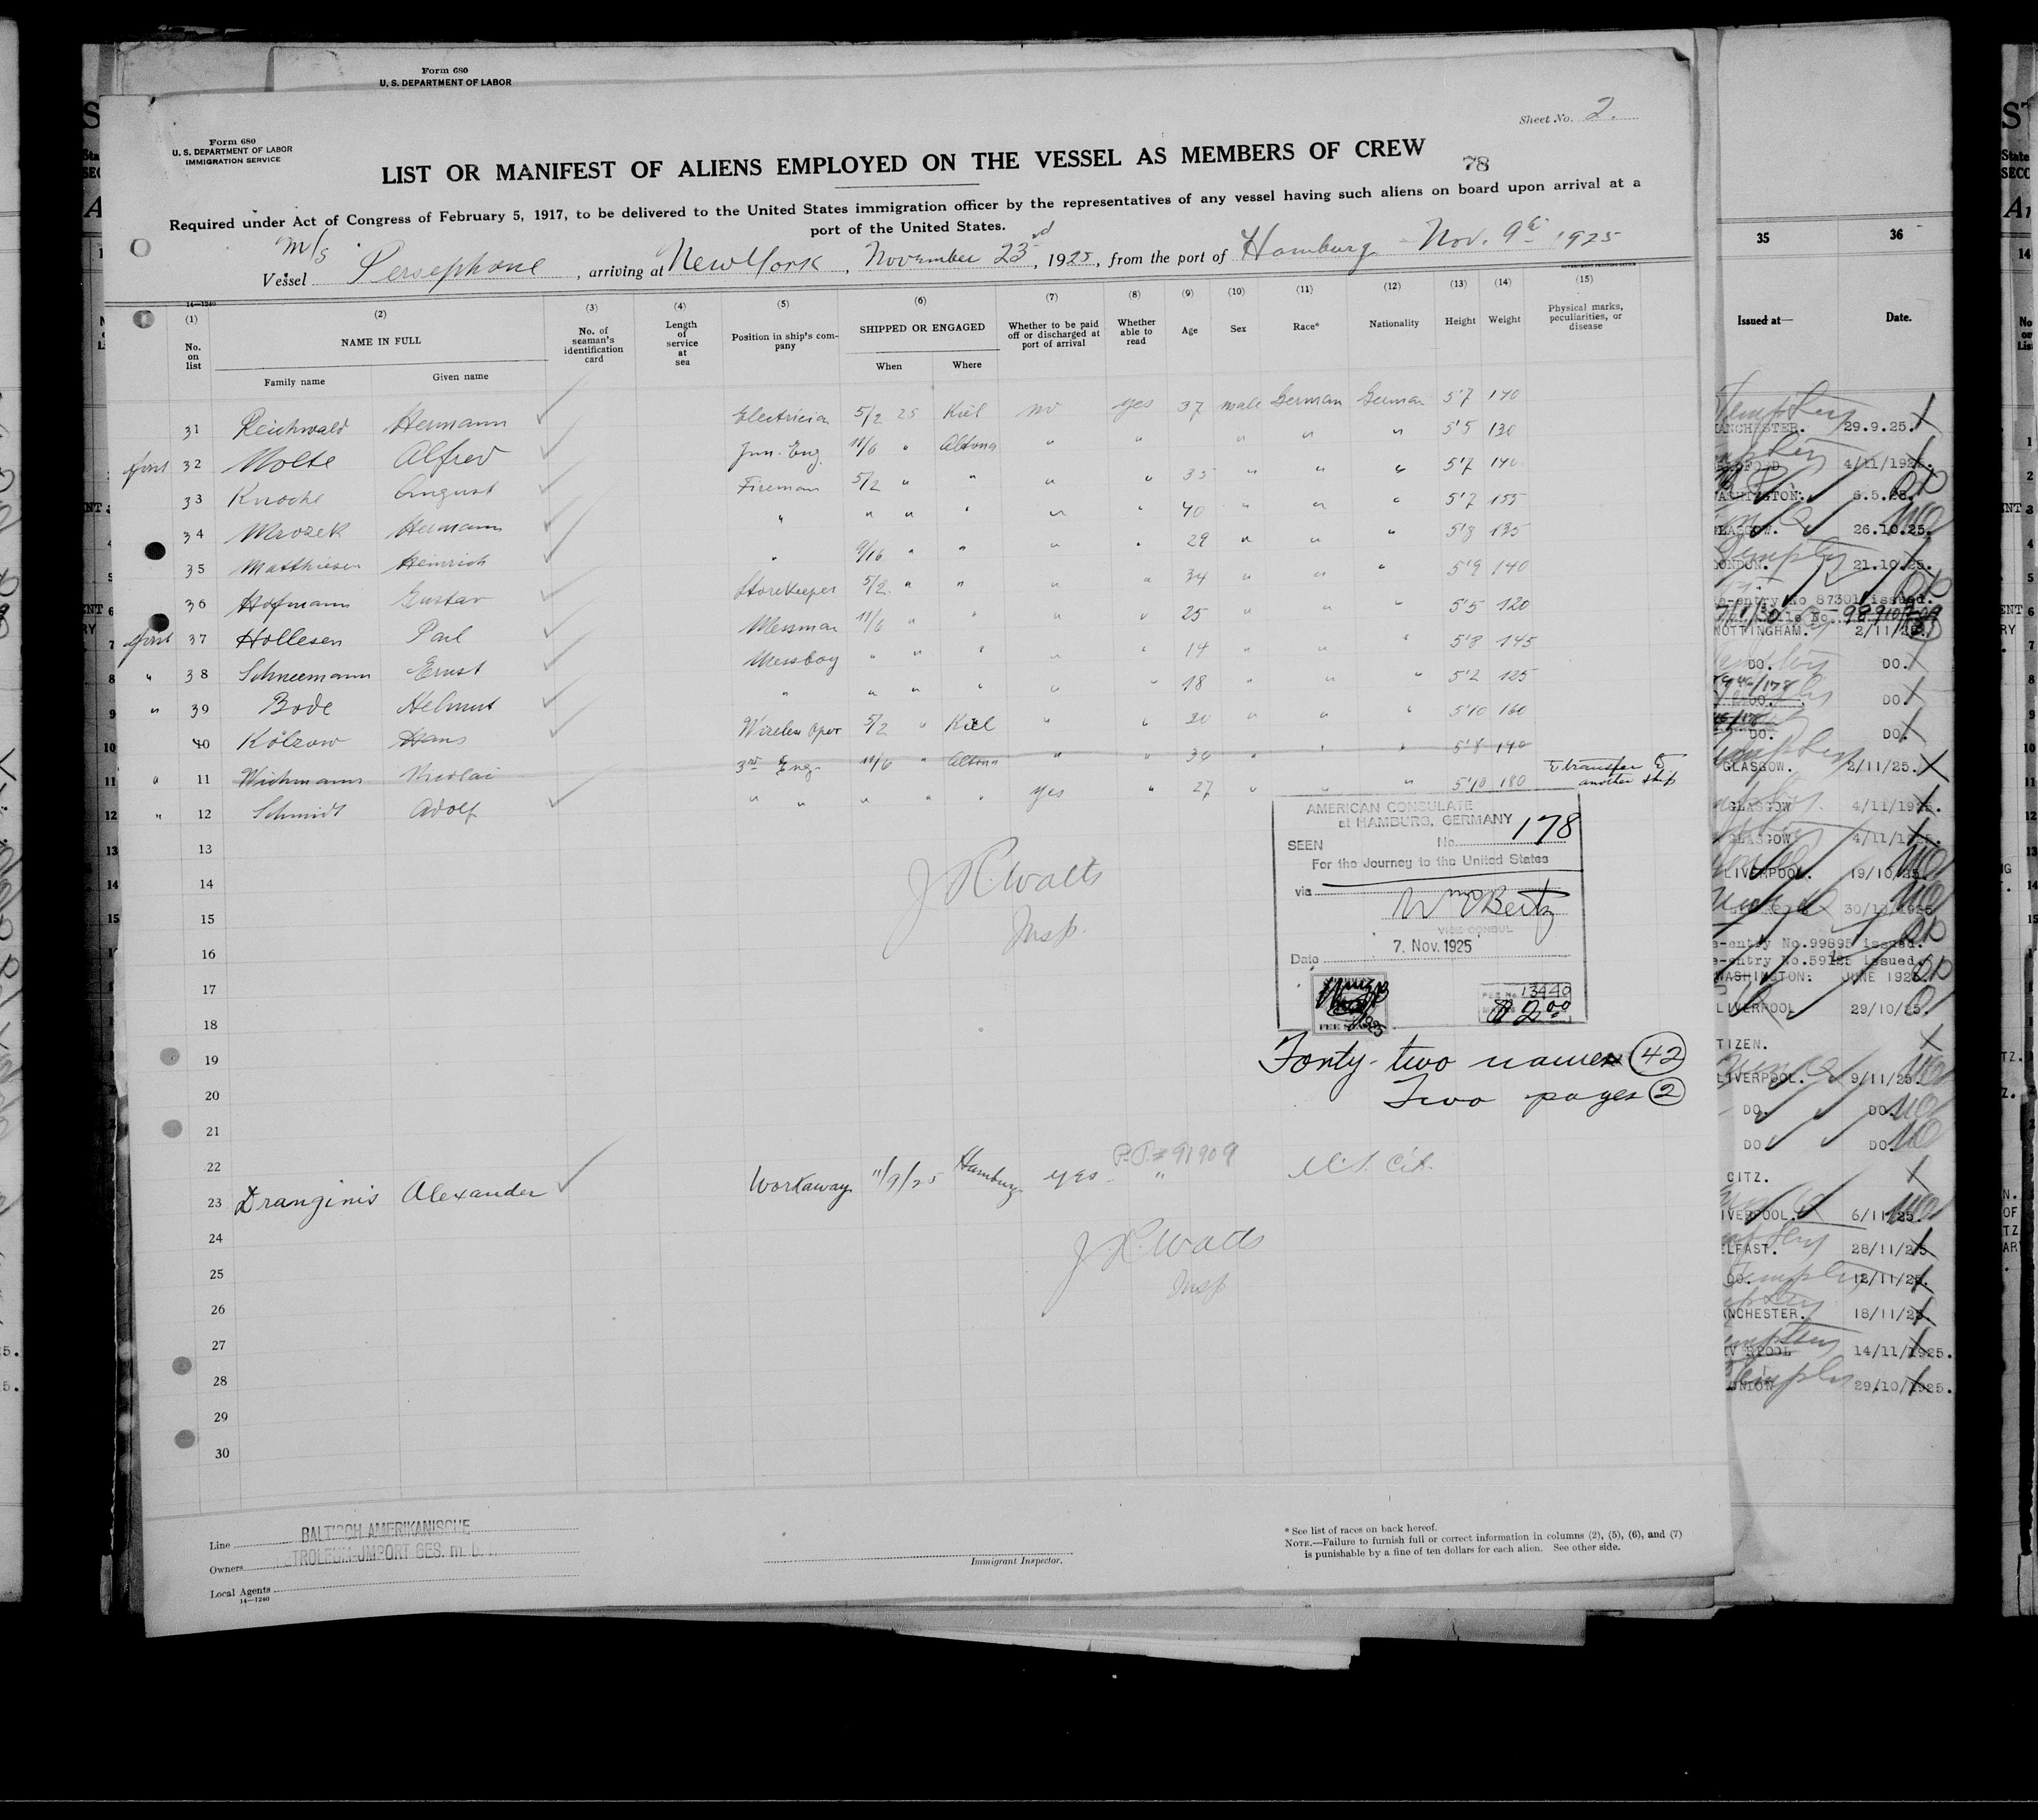 Form 680
U. S. DEPARTMENT OF LABOR
Form 680
U. S. DEPARTMENT OF LABOR
IMMIGRATION SERVICE
Sheet No. 2.
LIST OR MANIFEST OF ALIENS EMPLOYED ON THE VESSEL AS MEMBERS OF CREW
78
Required under Act of Congress of February 5, 1917, to be delivered to the United States immigration officer by the representatives of any vessel having such aliens on board upon arrival at a
port of the United States.
Vessel m/s Persephone, arriving at New York, November 23rd, 1925, from the port of Hamburg - Nov. 9th 1925
14—1240
(1) (2) (3) (4) (5) (6) (7) (8) (9) (10) (11) (12) (13) (14) (15)
No. on list
NAME IN FULL
Family name Given name
No. of seaman's identification card
Length of service at sea
Position in ship's company
SHIPPED OR ENGAGED
When Where
Whether to be paid off or discharged at port of arrival
Whether able to read
Age Sex Race* Nationality Height Weight
Physical marks, peculiarities, or disease
31 Reichwald Hermann Electrician 5/2 25 Kiel no yes 37 male German German 5'7 140
first 32 Molte Alfred Jun. Eng. 11/6 " Altona " " " " " 5'5 130
33 Knoche August Fireman 5/2 " " " " 35 " " " 5'7 140
34 Mrozek Hermann " " " " " " 40 " " " 5'7 155
35 Matthiesen Heinrich " 9/16 " " " " 29 " " " 5'8 135
36 Hofmann Gustav Storekeeper 5/2 " " " " 34 " " " 5'9 140
first 37 Hollesen Paul Messman 11/6 " " " " 25 " " " 5'5 120
" 38 Schneemann Ernst Messboy " " " " " 14 " " " 5'8 145
" 39 Bode Helmut " " " " " " 18 " " " 5'2 125
40 Kölzow Hans Wireless Oper 5/2 " Kiel " " 20 " " " 5'10 160
" 11 Wichmann Nicolai 3rd Eng. 11/6 " Altona " " 30 " " " 5'8 140
transfer to
another ship
" 12 Schmidt Adolf " " " " " yes " 27 " " " 5'10 180
13
14
15
16
17
18
19
20
21
22
J R Watts
Insp.
AMERICAN CONSULATE
at HAMBURG, GERMANY
SEEN No. 178
For the Journey to the United States
via
VICE CONSUL
Date 7. Nov. 1925
FEE No. 13440
$2.00
Forty-two names 42
Two pages 2
P.P. # 91909
23 Dranginis Alexander Workaway 11/9/25 Hamburg yes " U.S. Cit.
J. R. Watts
Insp
24
25
26
27
28
29
30
Line BALTISCH AMERIKANISCHE
Owners PETROLEUM-IMPORT GES. m. b. H.
Local Agents
14—1240
Immigrant Inspector.
* See list of races on back hereof.
NOTE.—Failure to furnish full or correct information in columns (2), (5), (6), and (7)
is punishable by a fine of ten dollars for each alien. See other side.
35 36
Issued at— Date.
29.9.25.
4/11/1925.
6.5.25.
26.10.25.
21.10.25
87301 issued.
NOTTINGHAM. 2/11/25
DO. DO.
DO. DO.
DO. DO.
GLASGOW. 2/11/25.
GLASGOW 4/11/1925.
GLASGOW 4/11/1925.
LIVERPOOL. 19/10/25.
30/10/1925
-entry No.99895 issued.
-entry No.59125 issued.
WASHINGTON: JUNE 1925.
LIVERPOOL 29/10/25.
TIZEN.
LIVERPOOL. 9/11/25.
DO. DO.
DO DO.
CITZ.
IVERPOOL. 6/11/25.
LFAST. 28/11/25
DO. 12/11/25.
NCHESTER. 18/11/25.
14/11/1925.
29/10/1925.